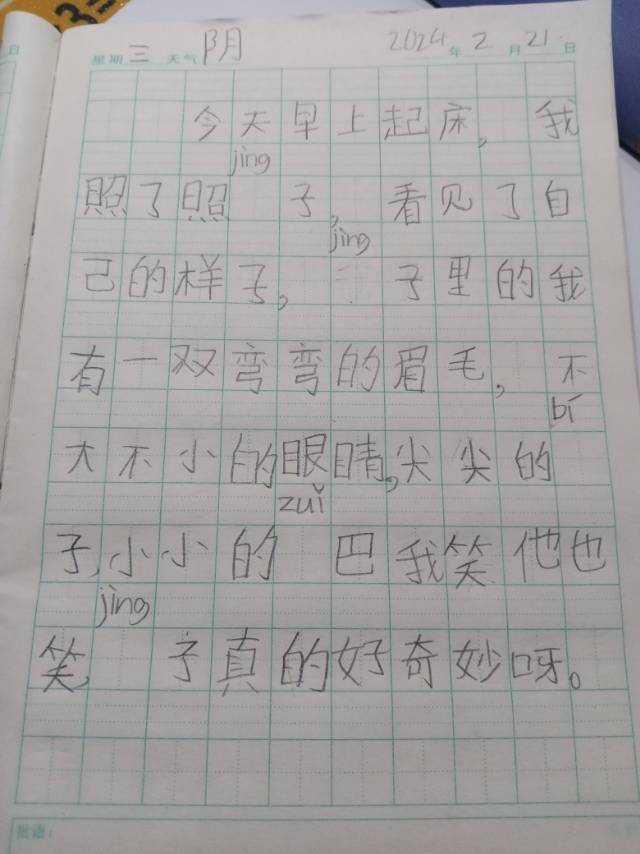 星期 三 天气 阴 2024 年 2 月 21 日
今天早上起床,我
jìng
照了照 子,看见了自
jìng
己的样子, 子里的我
有一双弯弯的眉毛,不
bí
大不小的眼睛,尖尖的
zuǐ
子,小小的 巴我笑他也
jìng
笑, 子真的好奇妙呀。
批语: